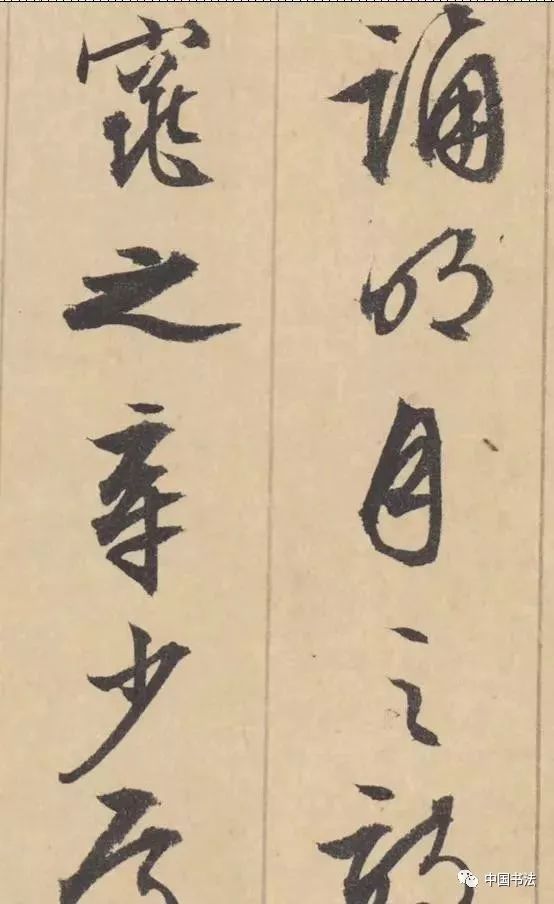 誦明月之詩
窕之章少焉
中国书法